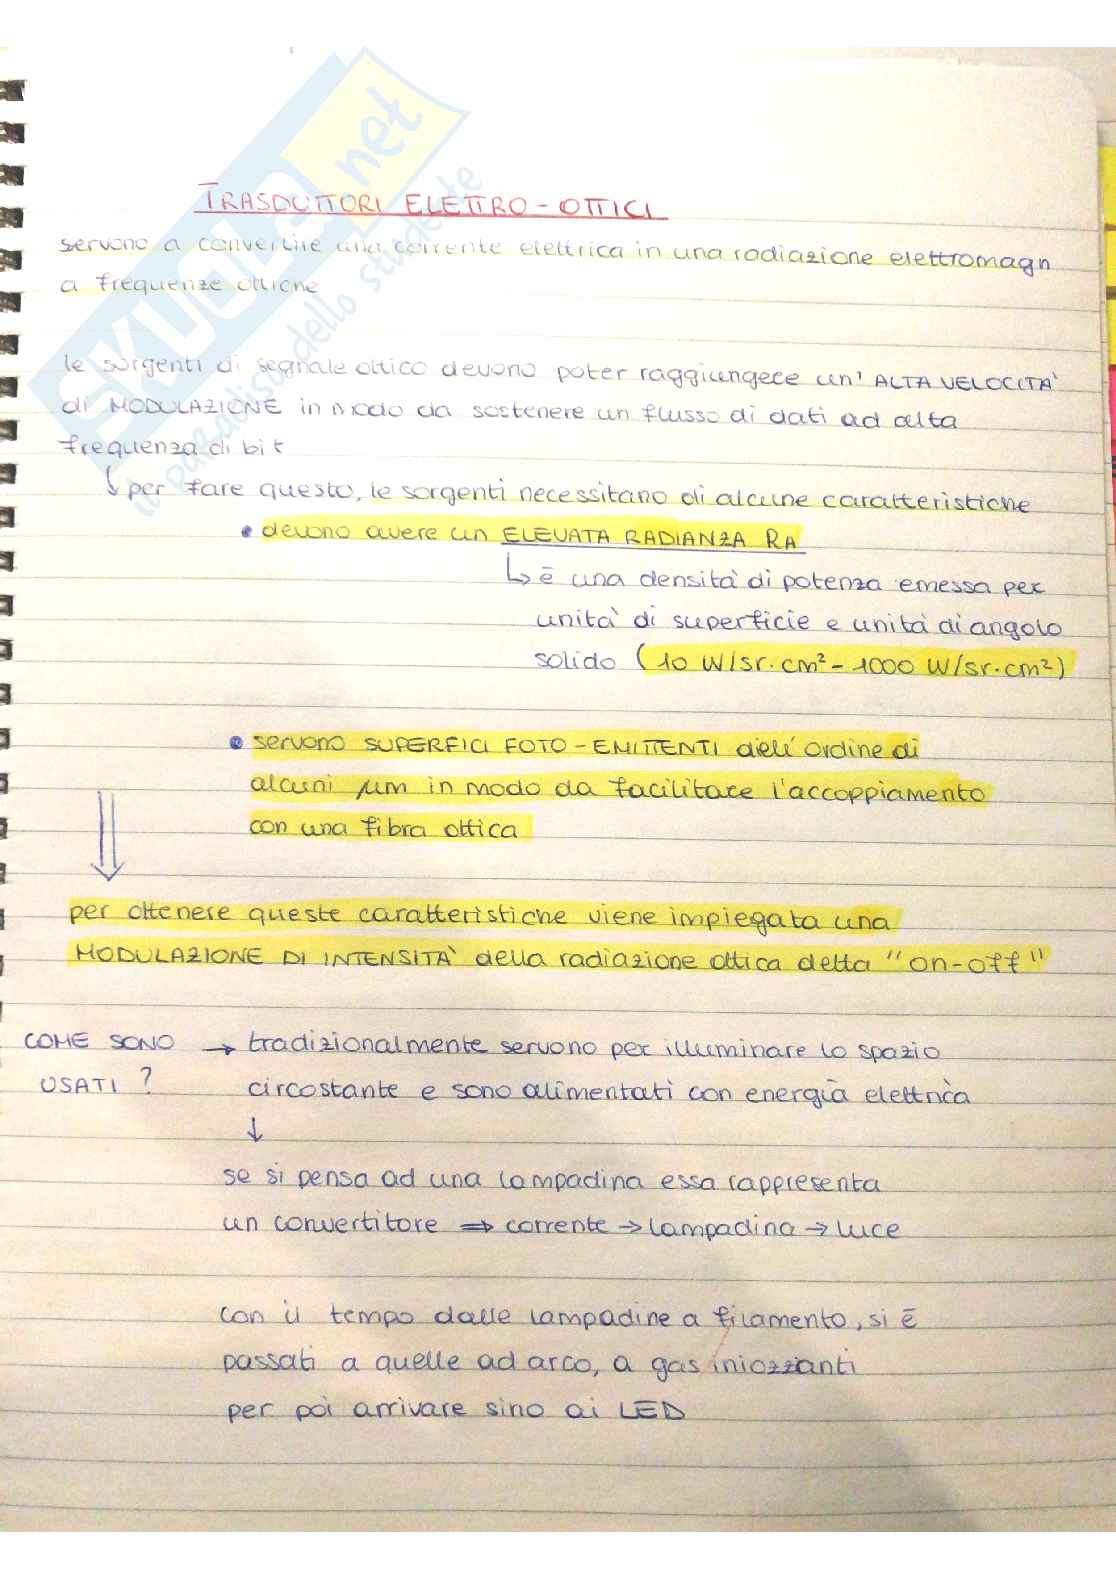 TRASDUTTORI ELETTRO-OTTICI
servono a convertire una corrente elettrica in una radiazione elettromagn
a frequenze ottiche
le sorgenti di segnale ottico devono poter raggiungere un' ALTA VELOCITA'
di MODULAZIONE in modo da sostenere un flusso di dati ad alta
frequenza di bit
↳ per fare questo, le sorgenti necessitano di alcune caratteristiche
• devono avere un ELEVATA RADIANZA RA
↳ è una densità di potenza emessa per
unità di superficie e unità di angolo
solido (10 W/sr.cm² - 1000 W/sr.cm²)
• servono SUPERFICI FOTO-EMITTENTI dell'ordine di
alcuni µm in modo da facilitare l'accoppiamento
con una fibra ottica
⇓
per ottenere queste caratteristiche viene impiegata una
MODULAZIONE DI INTENSITA' della radiazione ottica detta "on-off"
COME SONO → tradizionalmente servono per illuminare lo spazio
USATI? circostante e sono alimentati con energia elettrica
↓
se si pensa ad una lampadina essa rappresenta
un convertitore ⇒ corrente → lampadina → luce
con il tempo dalle lampadine a filamento, si è
passati a quelle ad arco, a gas iniozzanti
per poi arrivare sino ai LED
SKUOLA.net
il paradiso dello studente